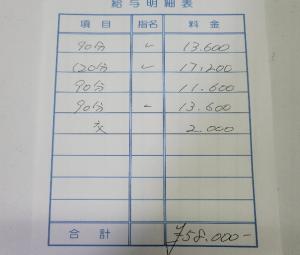 給与明細表
項目 指名 料金
90分 ✓ 13.600
120分 ✓ 17,200
90分 11.600
90分 - 13.600
交 2.000
合計 ¥58.000-